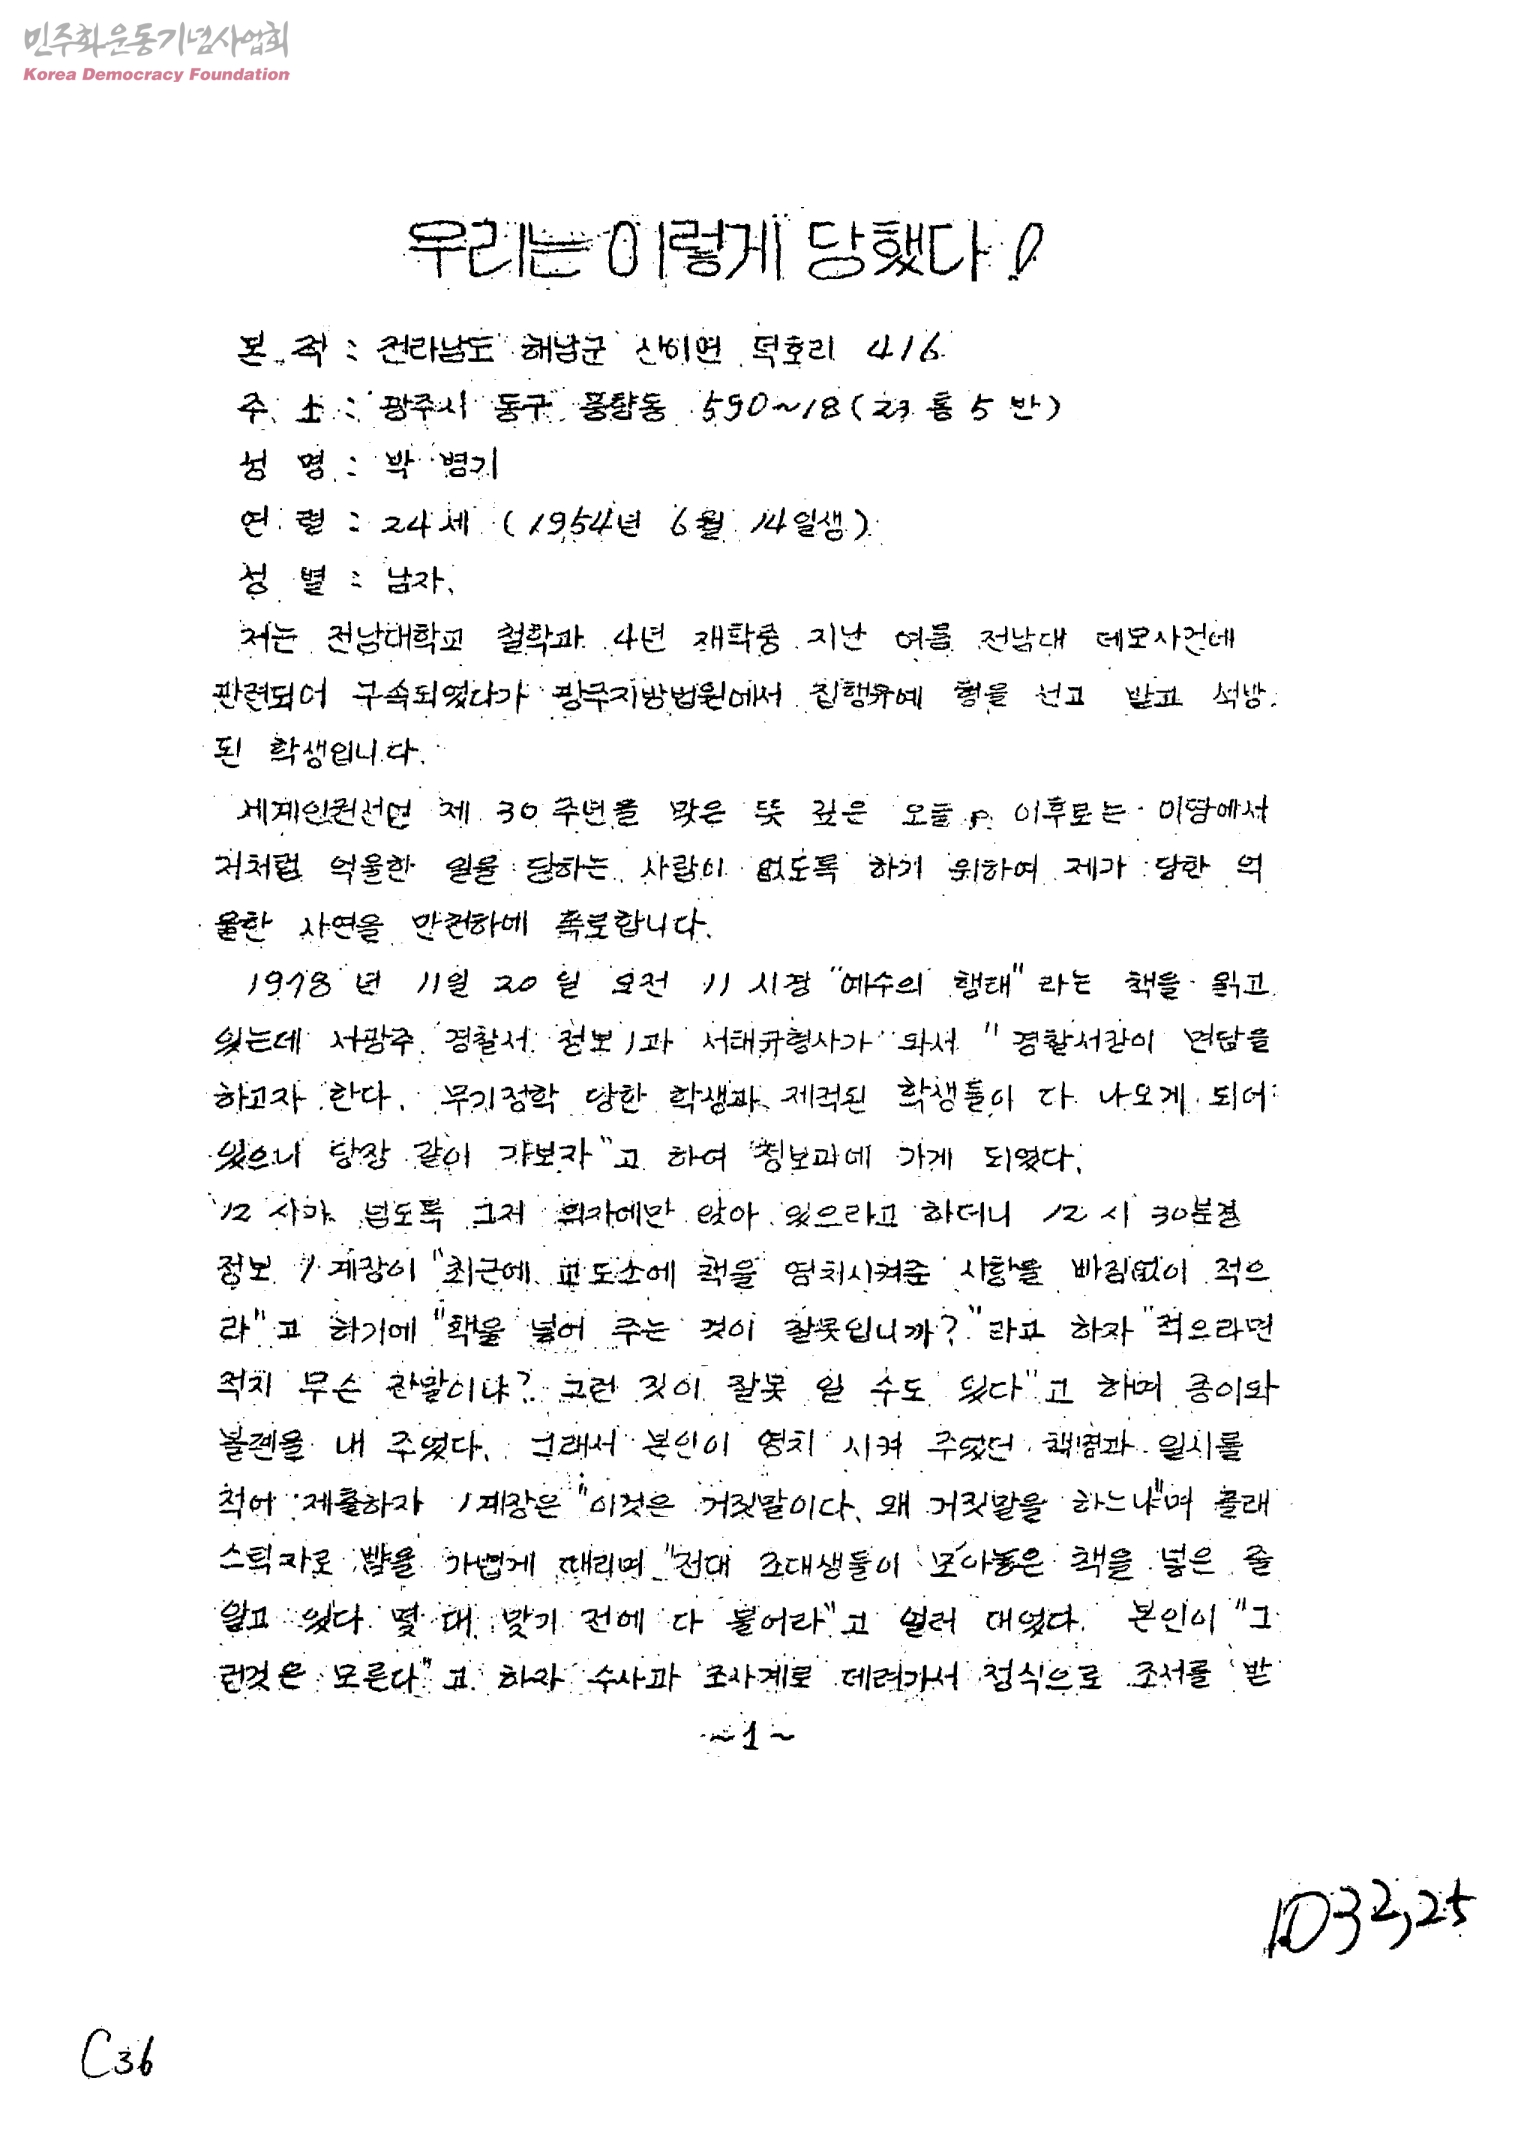 민주화운동기념사업회
Korea Democracy Foundation
우리는 이렇게 당했다!
본 적 : 전라남도 해남군 산이면 덕호리 416
주 소 : 광주시 동구 풍향동 590~18 (23통 5반)
성 명 : 박 병기
연 령 : 24세 (1954년 6월 14일생)
성 별 : 남자.
저는 전남대학교 철학과 4년 재학중 지난 여름 전남대 데모사건에
관련되어 구속되었다가 광주지방법원에서 집행유예 형을 선고 받고 석방
된 학생입니다.
세계인권선언 제 30주년을 맞은 뜻 깊은 오늘, 이후로는 이땅에서
저처럼 억울한 일을 당하는 사람이 없도록 하기 위하여 제가 당한 억
울한 사연을 만천하에 폭로합니다.
1978년 11월 20일 오전 11시경 "예수의 행태"라는 책을 읽고
있는데 서광주 경찰서 정보1과 서태규형사가 와서 "경찰서장이 면담을
하고자 한다. 무기정학 당한 학생과 제적된 학생들이 다 나오게 되어
있으니 당장 같이 가보자"고 하여 정보과에 가게 되었다.
12시가 넘도록 그저 의자에만 앉아 있으라고 하더니 12시 30분경
정보 1계장이 "최근에 교도소에 책을 영치시켜준 사항을 빠짐없이 적으
라"고 하기에 "책을 넣어 주는 것이 잘못입니까?"라고 하자 "적으라면
적지 무슨 잔말이냐? 그런 것이 잘못 일 수도 있다"고 하며 종이와
볼펜을 내 주었다. 그래서 본인이 영치 시켜 주었던 책명과 일시를
적어 제출하자 1계장은 "이것은 거짓말이다. 왜 거짓말을 하느냐"며 플래
스틱자로 뺨을 가볍게 때리며 "전대 조대생들이 모아놓은 책을 넣은 줄
알고 있다 몇 대 맞기 전에 다 불어라"고 얼러 대었다. 본인이 "그
런것은 모른다"고 하자 수사과 조사계로 데려가서 정식으로 조서를 받
~1~
1032,25
C36